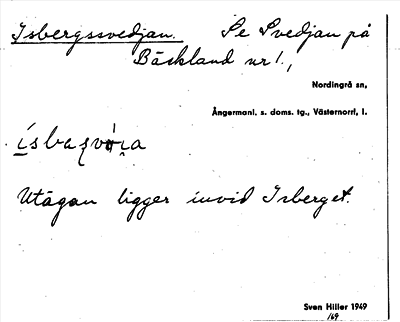 Isbergssvedjan. Se Svedjan på
Bäckland nr 1.,
Nordingrå sn,
Ångermanl. s. doms. tg., Västernorrl. l.
Utägan ligger invid Isberget.
Sven Hiller 1949
169